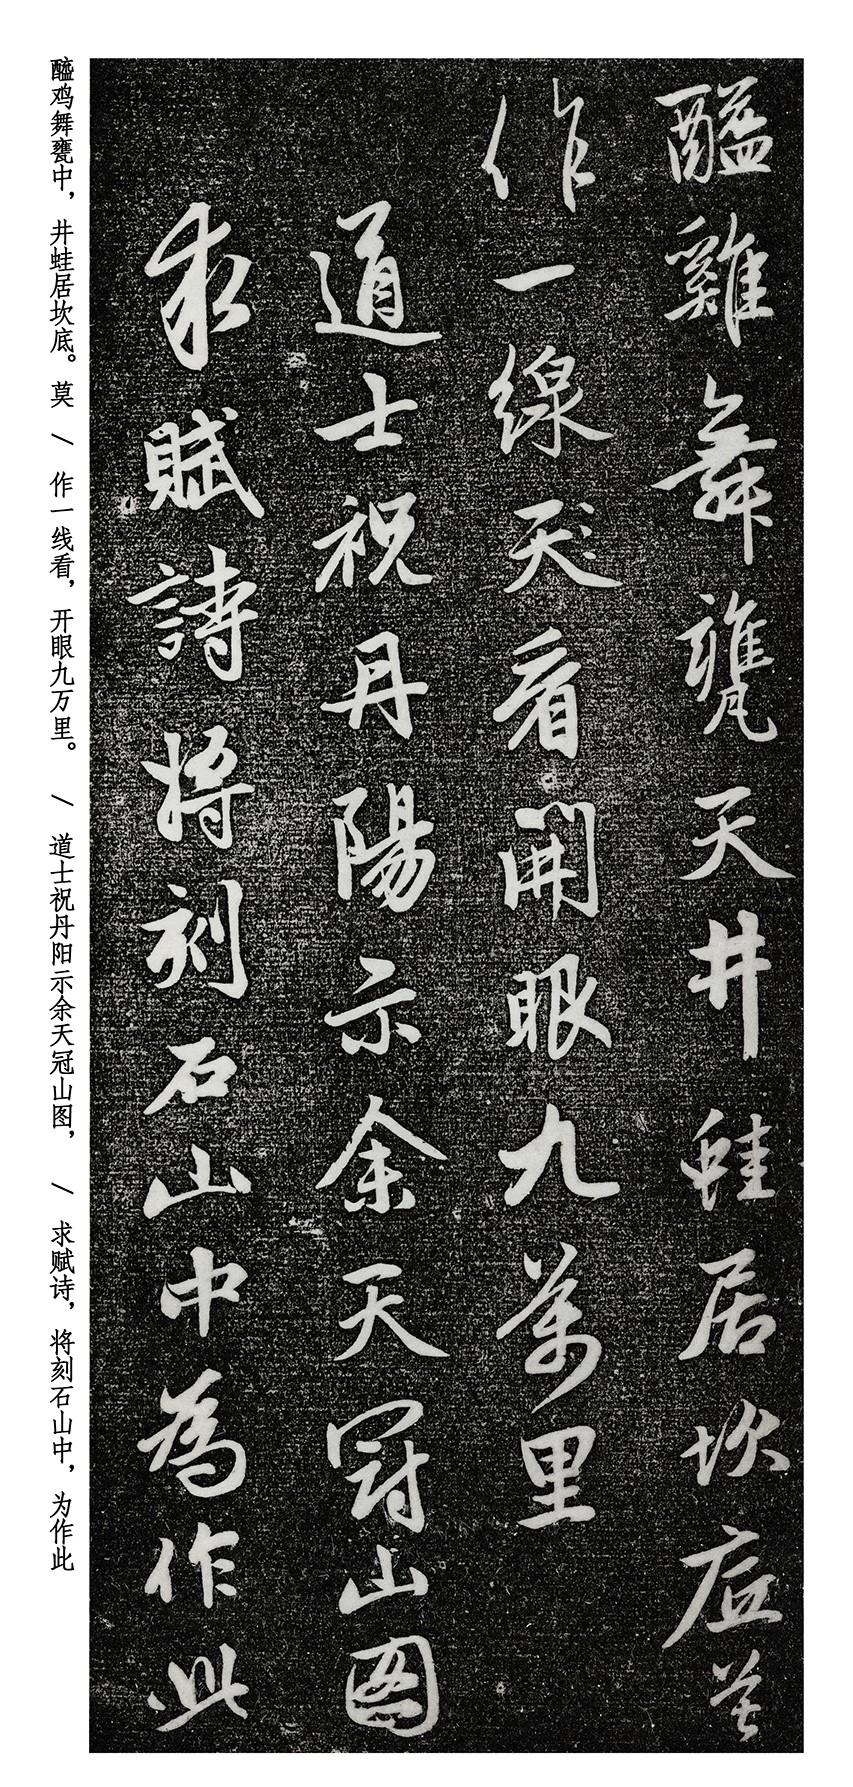 醯雞舞甕天井蛙居坎底莫
作一線天看開眼九萬里
道士祝丹陽示余天冠山圖
求賦詩將刻石山中為作此
醯鸡舞甕中，井蛙居坎底。莫 / 作一线看，开眼九万里。 / 道士祝丹阳示余天冠山图， / 求赋诗，将刻石山中，为作此